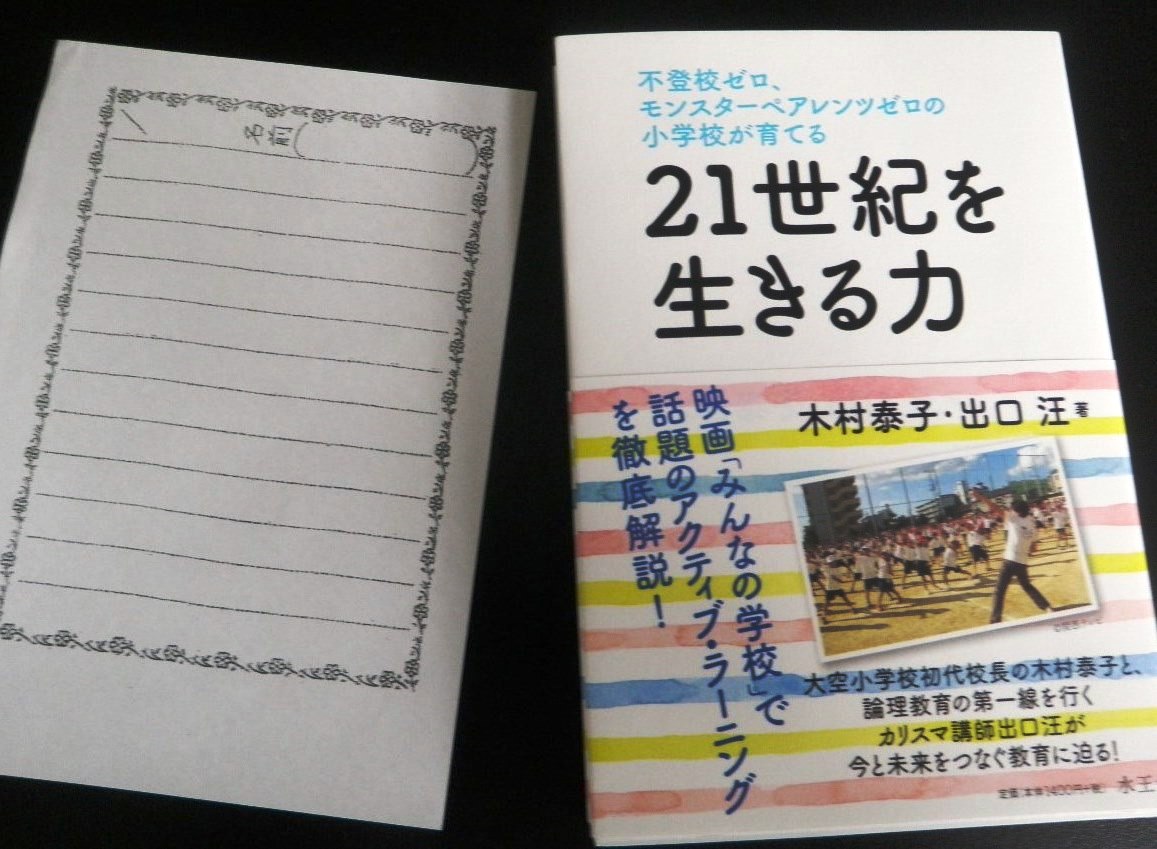 名前(　　　　)
不登校ゼロ、
モンスターペアレンツゼロの
小学校が育てる
21世紀を
生きる力
木村泰子・出口 汪 著
映画「みんなの学校」で
話題のアクティブ・ラーニング
を徹底解説！
大空小学校初代校長の木村泰子と、
論理教育の第一線を行く
カリスマ講師出口汪が
今と未来をつなぐ教育に迫る！
定価：本体1400円+税
水王